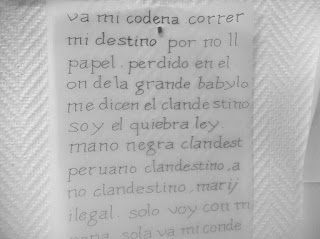 va mi codena correr
mi destino por no ll
papel. perdido en el
on de la grande babylo
me dicen el clandestino
soy el quiebra ley.
mano negra clandest
peruano clandestino, a
no clandestino, marij
ilegal. solo voy con m
pena, sola va mi conde